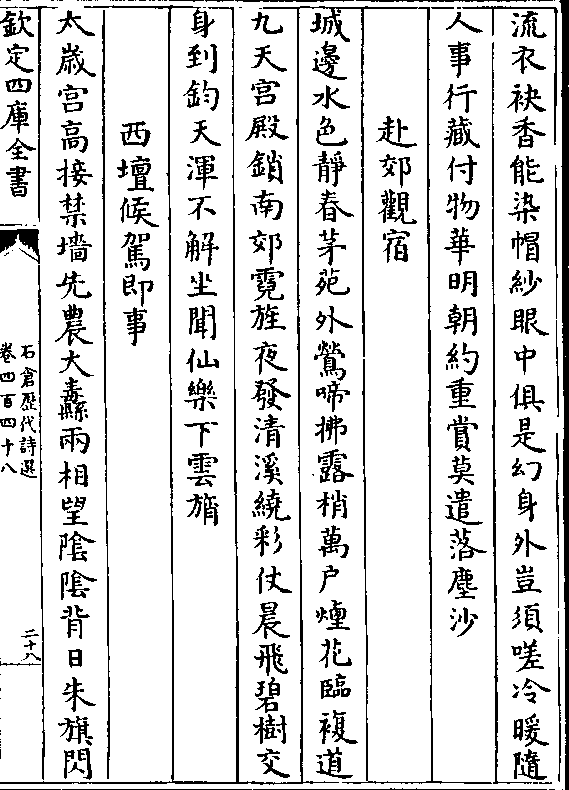 流衣袂香能染帽紗眼中俱是幻身外豈須嗟冷暖隨
人事行藏付物華明朝約重賞莫遣落塵沙
赴郊觀宿
城邊水色靜春茅苑外鶯啼拂露梢萬户煙花臨複道
九天宫殿鎖南郊霓旌夜發清溪繞彩仗晨飛碧樹交
身到鈞天渾不解坐聞仙樂下雲旓
西壇候駕即事
太歲宫高接禁墻先農大纛兩相望陰陰背日朱旗閃
欽定四庫全書
石倉歷代詩選
卷四百四十八
二十八